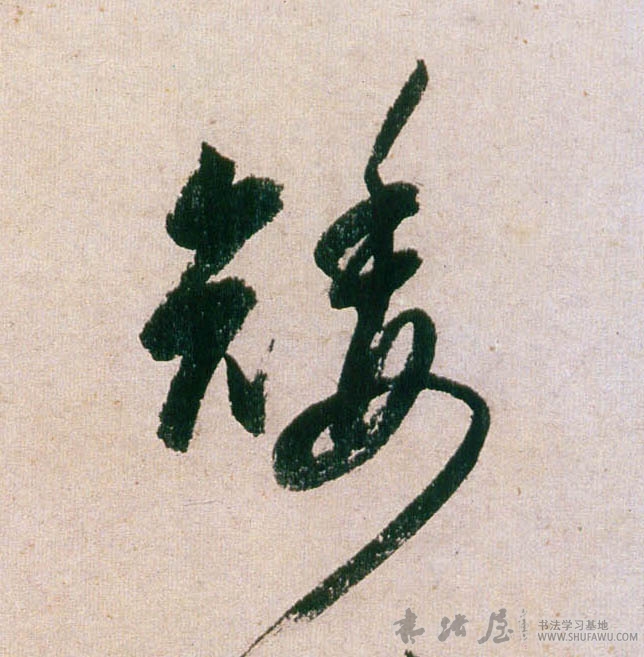 矮
书法屋 书法学习基地
WWW.SHUFAWU.COM